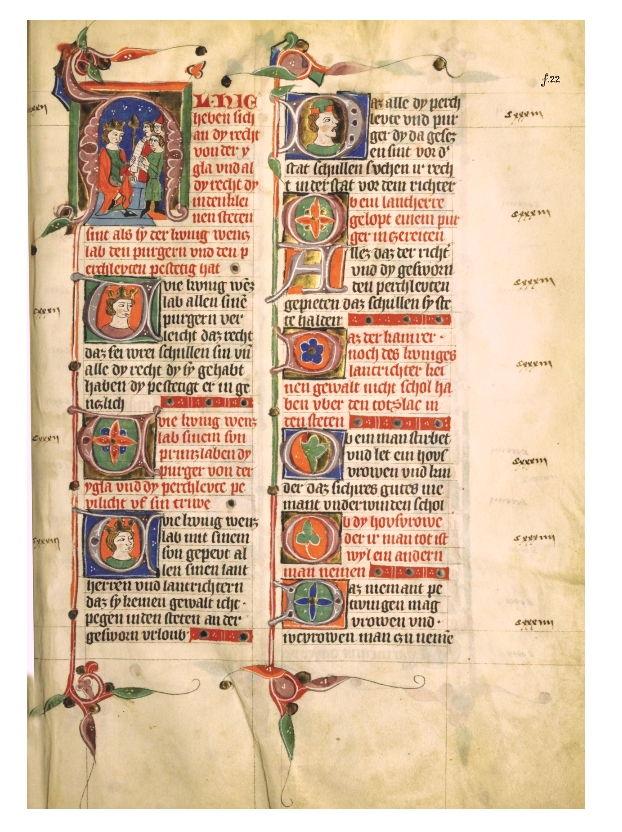 f.22
AL·hie
heven sich
an dy recht
von der y
gla vnd al
dy recht dy
in den klei
nen steten
sint als sy der kunig wenz
lab den purgern vnd den p
erchlevten pestetig hat
wie kunig wenz
lab allen sinen
purgern ver
leicht daz recht
daz sei vrei schullen sin vn
alle dy recht dy sy gehabt
haben dy pestetigt er in ge
nzlich
wie kunig wenz
lab sinem sun
prinzlaben dy
purger von der
ygla vnd dy perchlevte pe
vilicht vf sin triwe
wie kunig wenz
lab mit sinem
sun gepevt al
len sinen lant
herren vnd lantrichtern
daz sy keinen gewalt icht
pegen in den steten an der
gesworn vrloub
Daz alle dy perch
levte vnd pur
ger dy da gesez
en sint vor d'
stat schullen suchen ir rech
t in der stat vor dem richter
Ob ein lantherre
gelopt einem pur
ger in zereiten
Allez daz der richt'
vnd dy gesworn
den perchlevten
gepieten daz schullen sy ste
te halden
Daz der kamrer
noch des kuniges
lantrichter kei
nen gewalt nicht schol ha
ben vber den totslac in
den steten
Ob ein man stirbet
vnd let ein hovs
vrowen vnd kin
der daz sich ires gutes nie
mant vnderwinden schol
Ob dy hovsvrowe
der ir man tot ist
wyl ein andern
man nemen
Daz niemant pe
twingen mag
vrowen vnd
ivncvrowen man czu neme